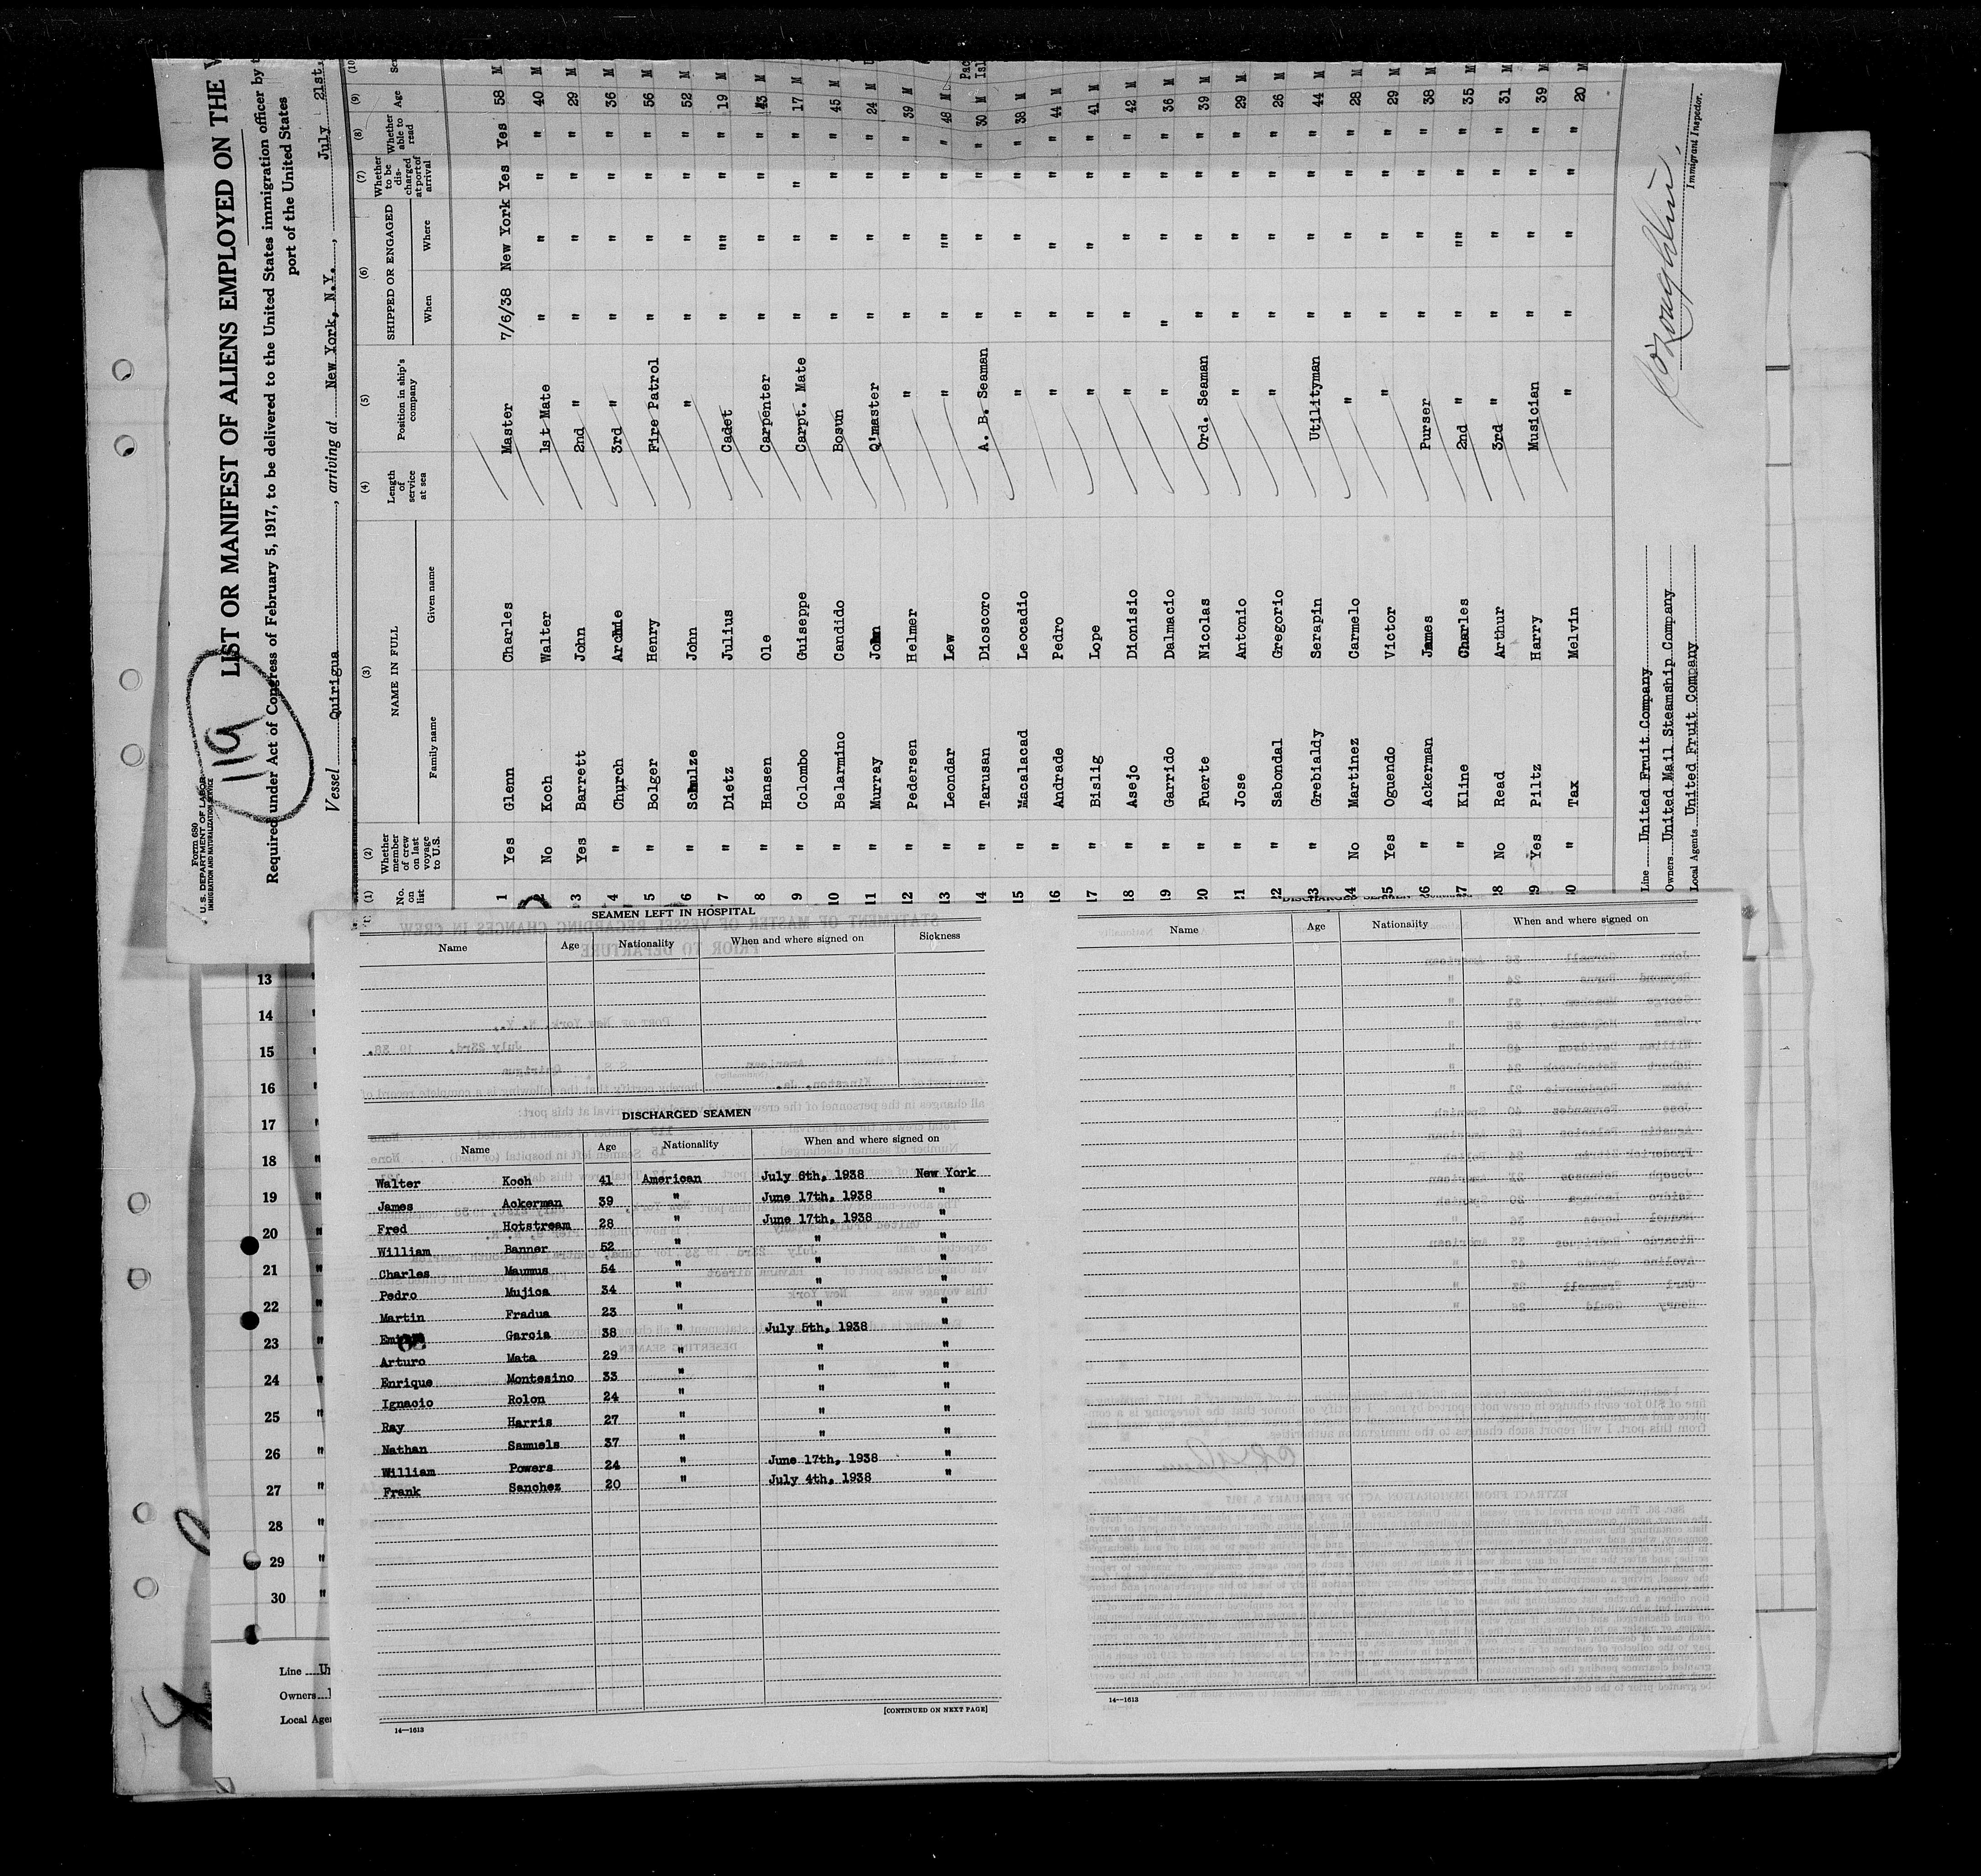 Form 680
U. S. DEPARTMENT OF LABOR
IMMIGRATION AND NATURALIZATION SERVICE
119
LIST OR MANIFEST OF ALIENS EMPLOYED ON THE
Required under Act of Congress of February 5, 1917, to be delivered to the United States immigration officer by
port of the United States
Vessel Quirigua, arriving at New York, N.Y., July 21st,
(1) (2) (3) (4) (5) (6) (7) (8) (9) (10)
No. on list Whether member of crew on last voyage to U.S. NAME IN FULL Family name Given name Length of service at sea Position in ship's company SHIPPED OR ENGAGED When Where Whether to be discharged at port of arrival Whether able to read Age
1 Yes Glenn Charles Master 7/6/38 New York Yes Yes 58 M
2 No Koch Walter 1st Mate " " " " 40 M
3 Yes Barrett John 2nd " " " " " 29 M
4 " Church Archie 3rd " " " " " 36 M
5 " Bolger Henry Fire Patrol " " " " 56 M
6 " Schulze John " " " " " 52 M
7 " Dietz Julius Cadet " "" " " 19 M
8 " Hansen Ole Carpenter " " " " 43 M
9 " Colombo Guiseppe Carpt. Mate " " " " 17 M
10 " Belarmino Candido Bosun " " " " 45 M
11 " Murray John Q'master " " " " 24 M
12 " Pedersen Helmer " " " " " 39 M
13 " Leondar Lew " " "" " " 48 M
14 " Tarusan Dioscoro A. B. Seaman " " " " 30 M
15 " Macalacad Leocadio " " " " " 38 M
16 " Andrade Pedro " " " " " 44 M
17 " Bislig Lope " " " " " 41 M
18 " Asejo Dionisio " " " " " 42 M
19 " Garrido Dalmacio " " " " " 36 M
20 " Fuerte Nicolas Ord. Seaman " " " " 39 M
21 " Jose Antonio " " " " " 29 M
22 " Sabondal Gregorio " " " " " 26 M
23 " Grebialdy Serapin Utilityman " " " " 44 M
24 No Martinez Carmelo " " " " " 28 M
25 Yes Oguendo Victor " " " " " 29 M
26 " Ackerman James Purser " " " " 38 M
27 " Kline Charles 2nd " " "" " " 35 M
28 No Read Arthur 3rd " " " " " 31 M
29 Yes Piltz Harry Musician " " " " 39 M
30 " Tax Melvin " " " " " 20 M
Line United Fruit Company
Owners United Mail Steamship Company
Local Agents United Fruit Company
Immigrant Inspector.
SEAMEN LEFT IN HOSPITAL
Name Age Nationality When and where signed on Sickness
DISCHARGED SEAMEN
Name Age Nationality When and where signed on
Walter Koch 41 American July 6th, 1938 New York
James Ackerman 39 " June 17th, 1938 "
Fred Hotstream 28 " June 17th, 1938 "
William Banner 52 " " "
Charles Maumus 54 " " "
Pedro Mujica 34 " " "
Martin Fradua 23 " " "
Garcia 38 " July 5th, 1938 "
Arturo Mata 29 " " "
Enrique Montesino 33 " " "
Ignacio Rolon 24 " " "
Ray Harris 27 " " "
Nathan Samuels 37 " " "
William Powers 24 " June 17th, 1938 "
Frank Sanchez 20 " July 4th, 1938 "
[CONTINUED ON NEXT PAGE]
14—1613
Name Age Nationality When and where signed on
14—1613
13 "
14 "
15 "
16 "
17 "
18 "
19 "
20 "
21 "
22 "
23 "
24 "
25 "
26 "
27 "
28 "
29 "
30 "
Line
Owners
Local